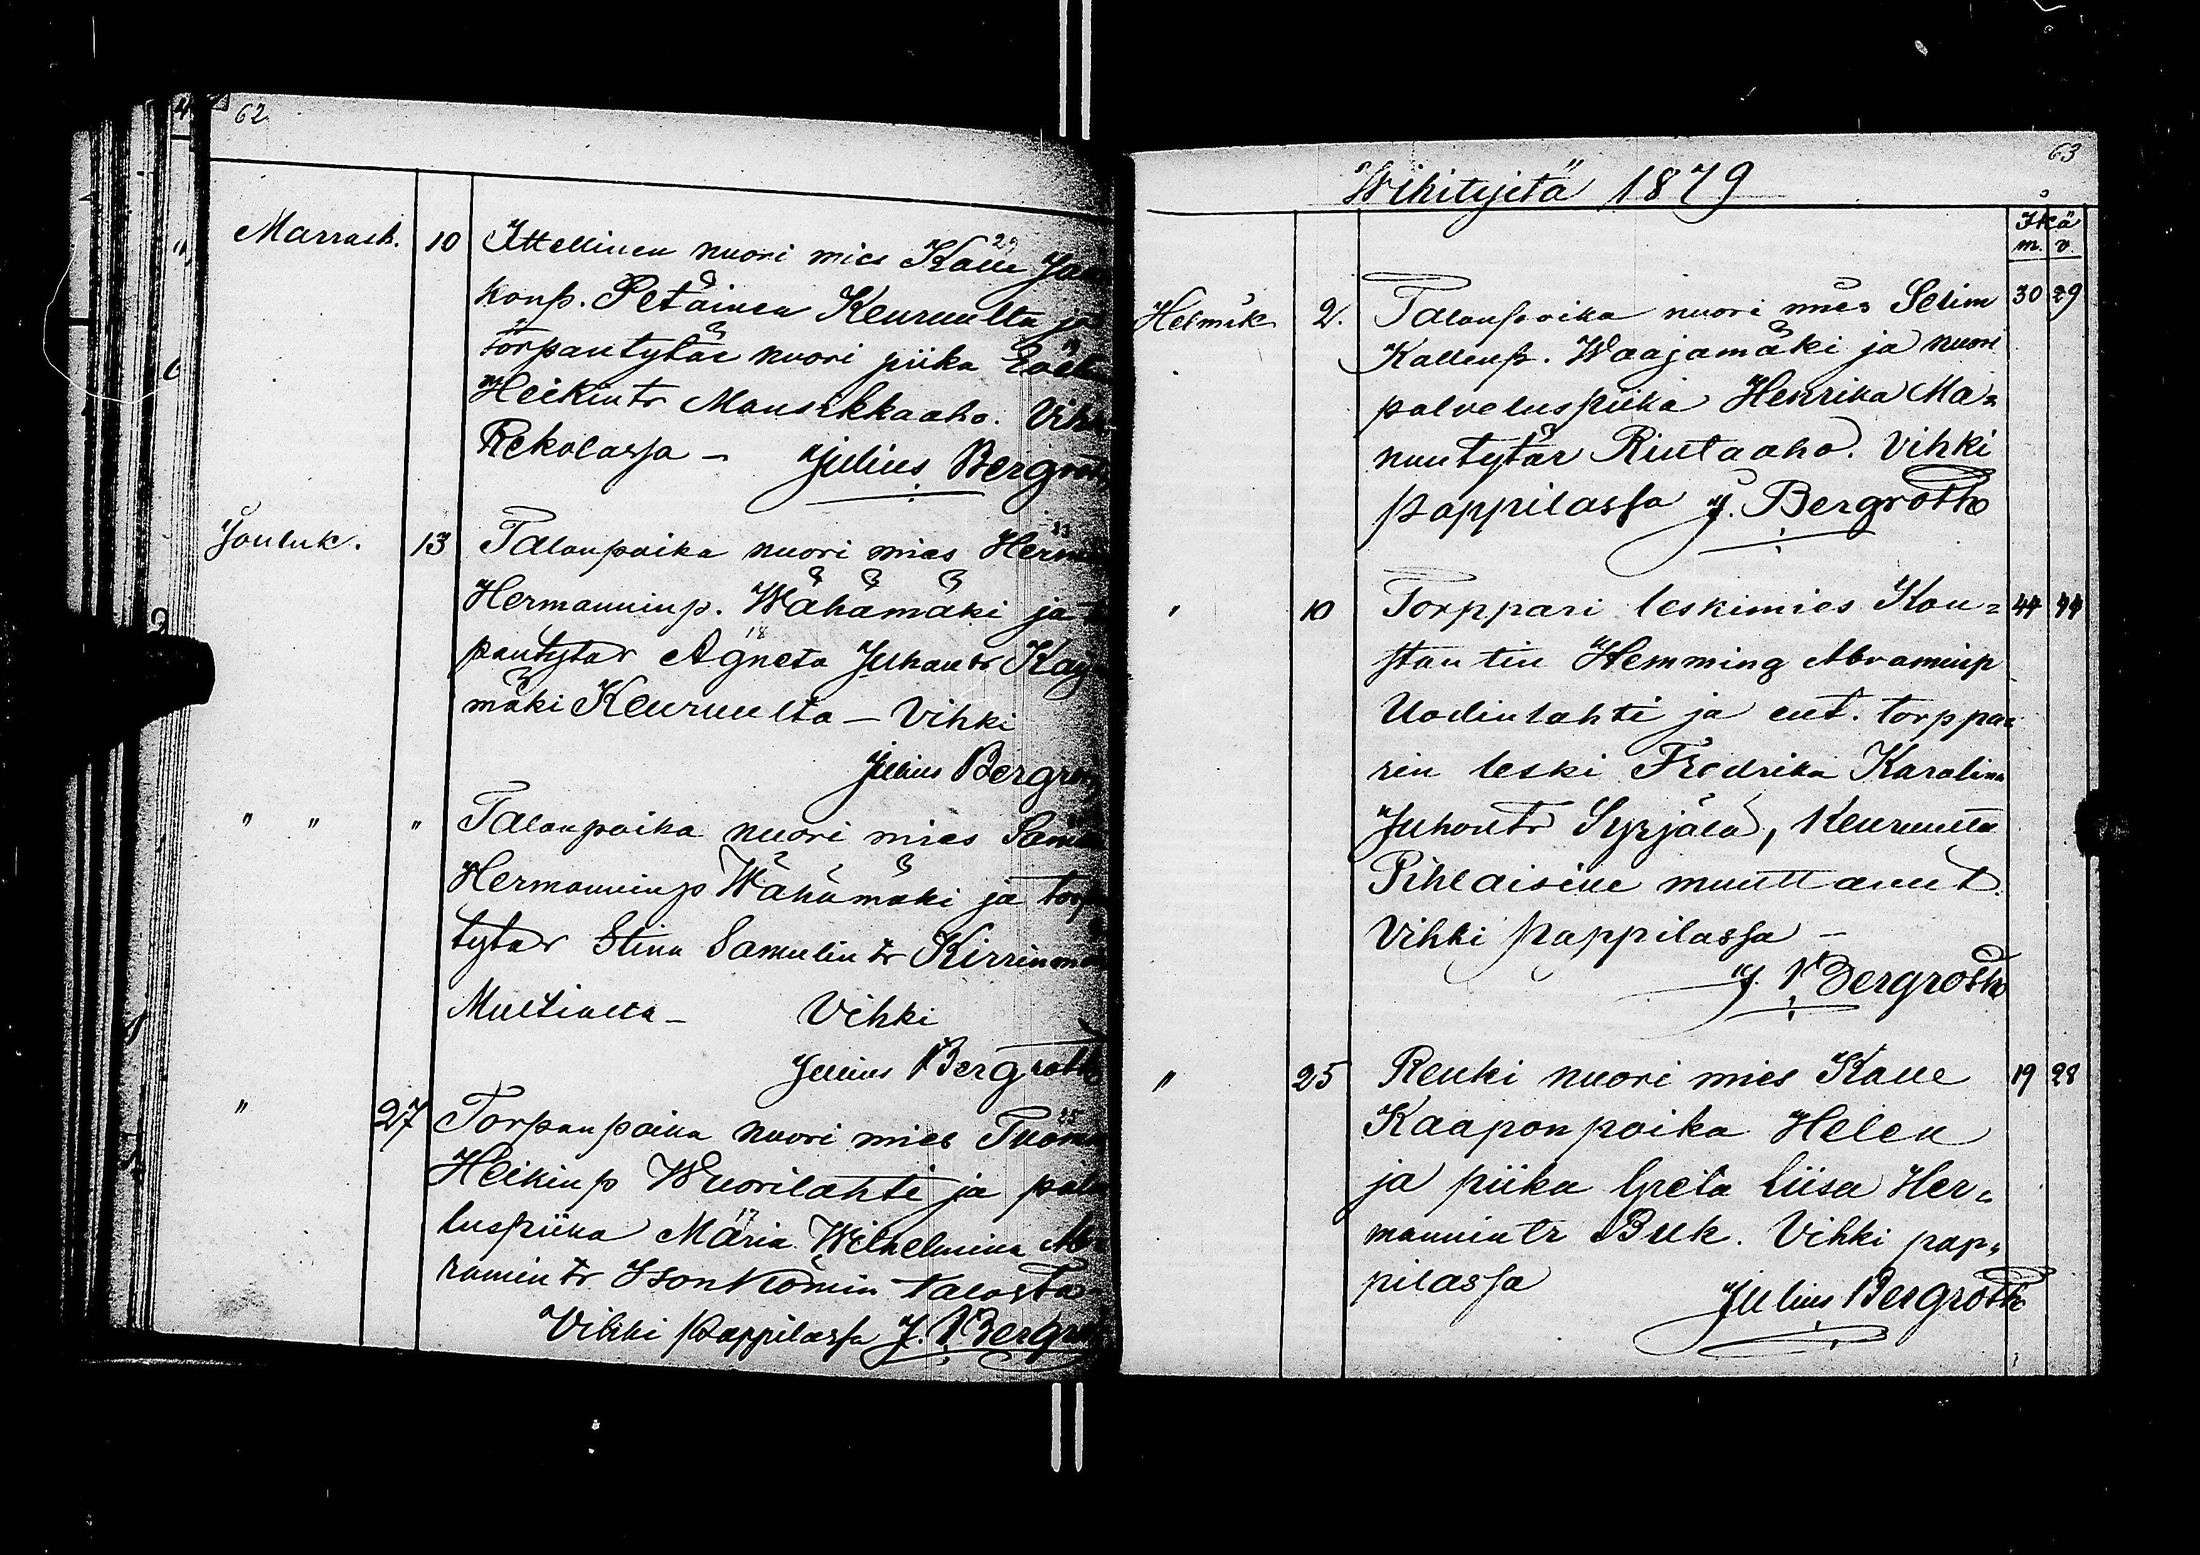 62
Marrask. 10 Ittellinen nuori mies Kalle
29
konp. Petäinen Keuruulta ja
torpantytär nuori piika
Heikintr Mansikkaaho.
Rekolassa – Julius Bergroth
Jouluk. 13 Talonpoika nuori mies
23
Hermanninp. Wähämäki ja
18
pantytär Agneta Juhantr
mäki Keuruulta – Vihki
Julius
" " " Talonpoika nuori mies
Hermanninp Wähämäki ja
tytär Stina Samulintr
Multialta – Vihki
Julius Bergroth
" 27 Torpanpoika nuori mies
25
Heikinp Wuorilahti ja
luspiika Maria Wilhelmina
ramintr Isonkömin talosta
Vihki Pappilassa J.
63
Wihityjetä 1879
Ikä
m. v.
Helmik 2. Talonpoika nuori mies Selim 30 29
Kallenp. Waajamäki ja nuori
palveluspiika Henrika Ma=
nuntytär Rintaaho. Vihki
pappilassa J. Bergroth
" 10 Torppari leskimies Kon= 44 44
stantin Hemming Abraminp
Uodinlahti ja ent. torppa=
rin leski Fredrika Karolina
Juhontr Syrjälä, Keuruulta
Pihlaisiin muuttanut.
Vihki pappilassa –
J. Bergroth
" 25 Renki nuori mies Kalle 19 28
Kaaponpoika Helen
ja piika Greta Liisa Her=
mannintr Buk. Vihki pap=
pilassa
Julius Bergroth